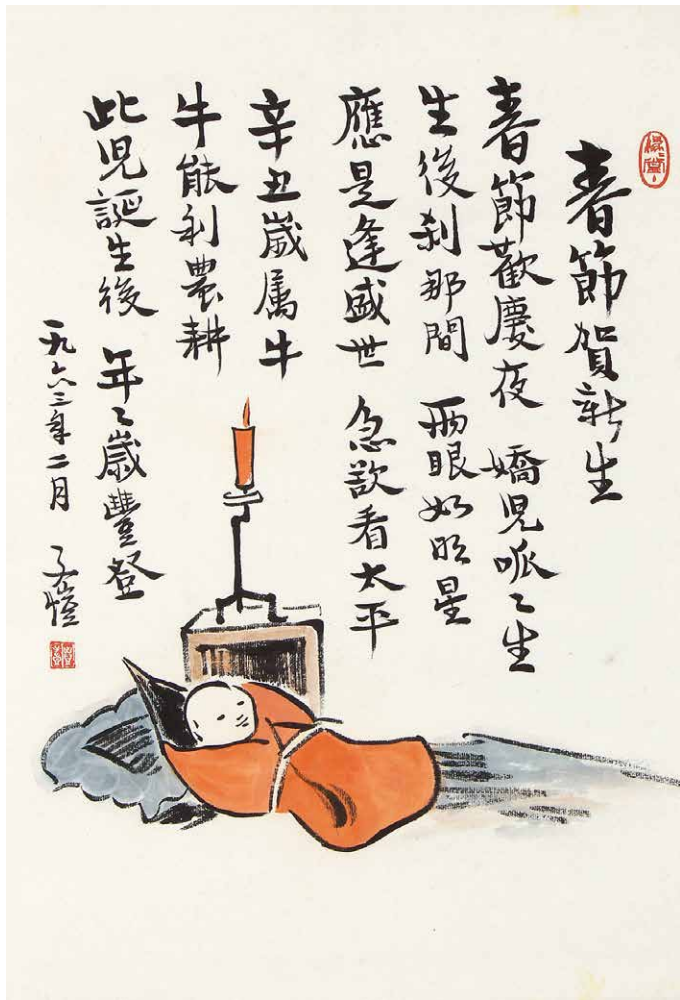 春節賀新生
春節歡慶夜 嬌兒呱〻生
生後刹那間 兩眼如明星
應是逢盛世 急欲看太平
辛丑歲属牛
牛能利農耕
此兒誕生後 年〻歲豐登
一九六三年二月 子愷